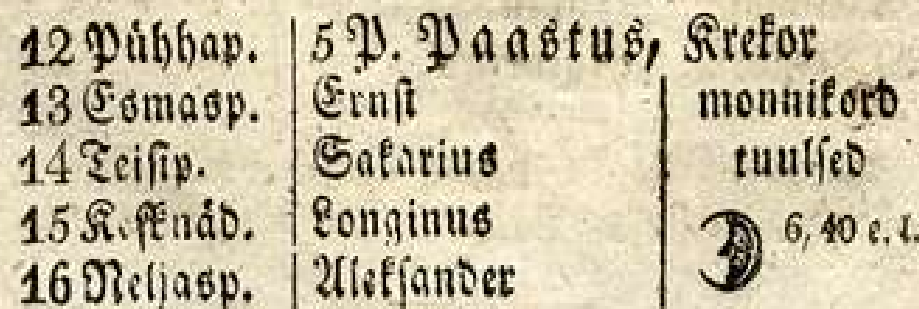 12 Pühhap. 5 P. Paastus, Krekor
13 Esmasp. Ernst monnikord
14 Teisip. Sakarius tuulsed
15 Kesknäd. Longinus 6, 40 e. l.
16 Neljasp. Aleksander